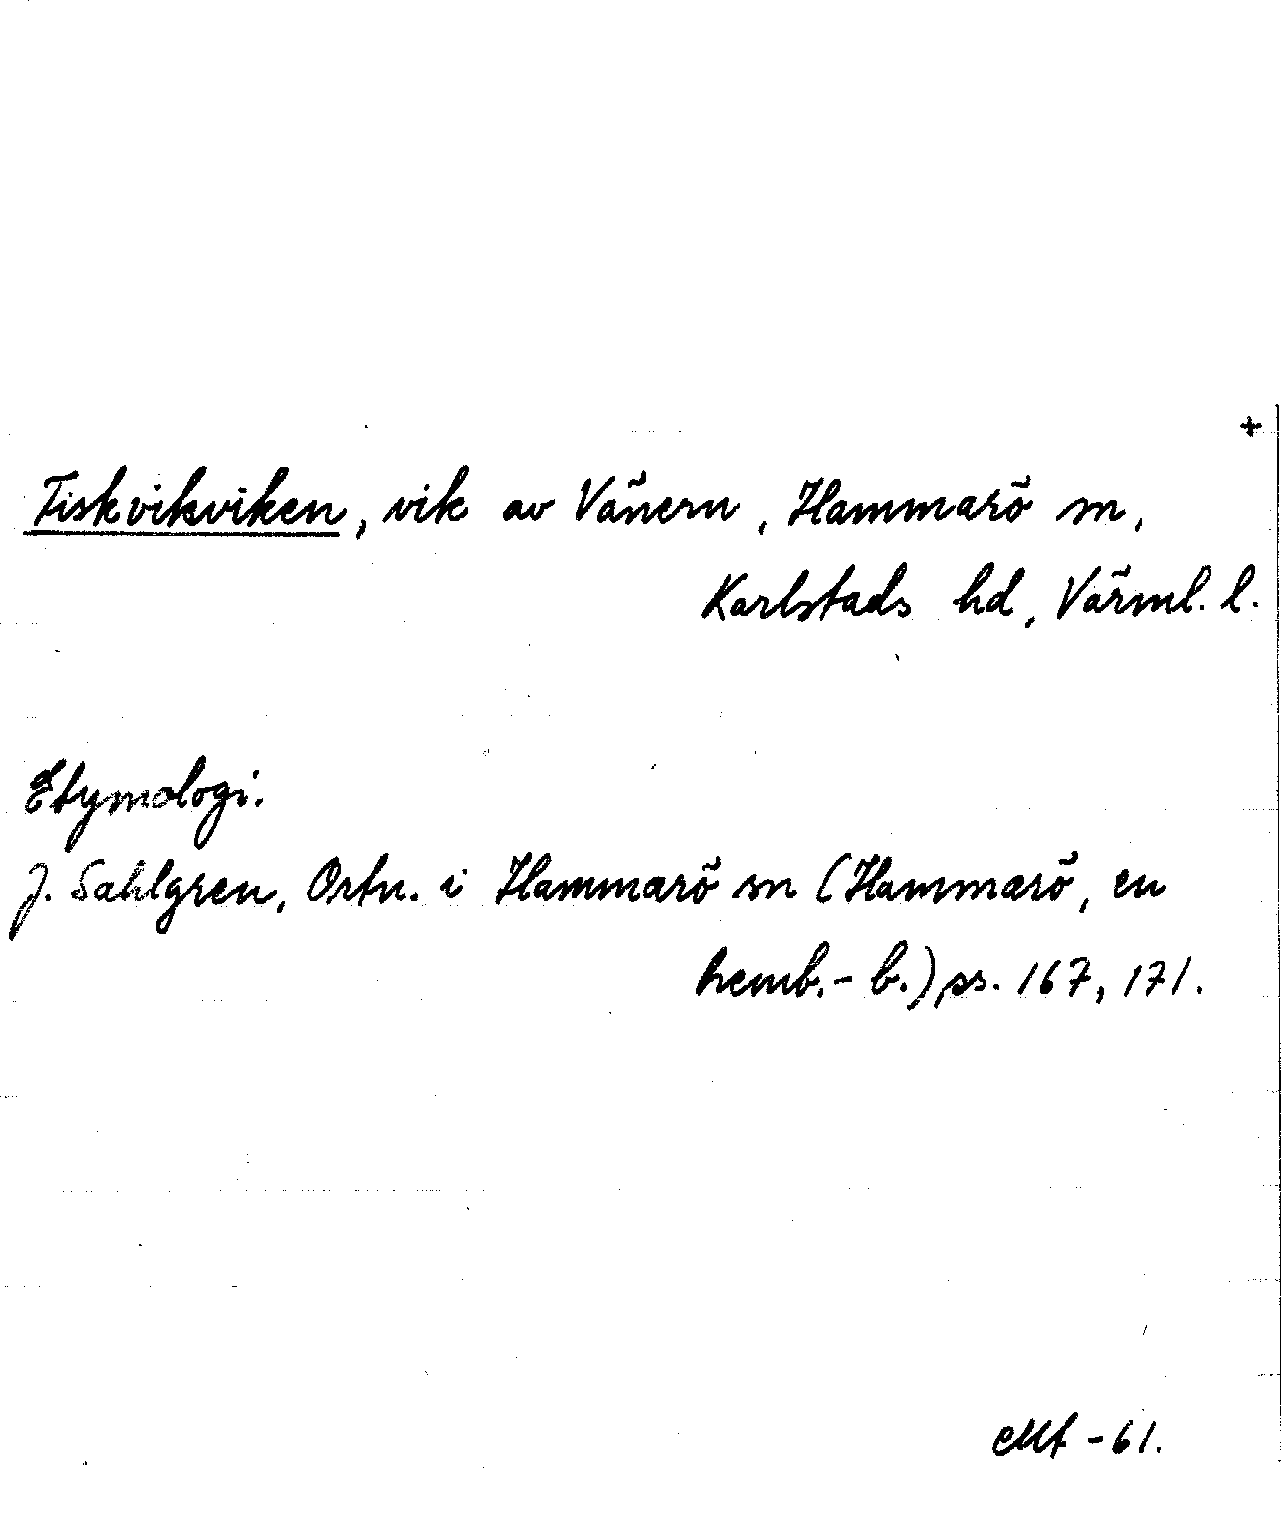 +
Fiskvikviken, vik av Vänern, Hammarö sn,
Karlstads hd, Värml. l.
Etymologi.
J. Sahlgren, Ortn. i Hammarö sn (Hammarö, en
hemb.-b.) ss. 167, 171.
-61.